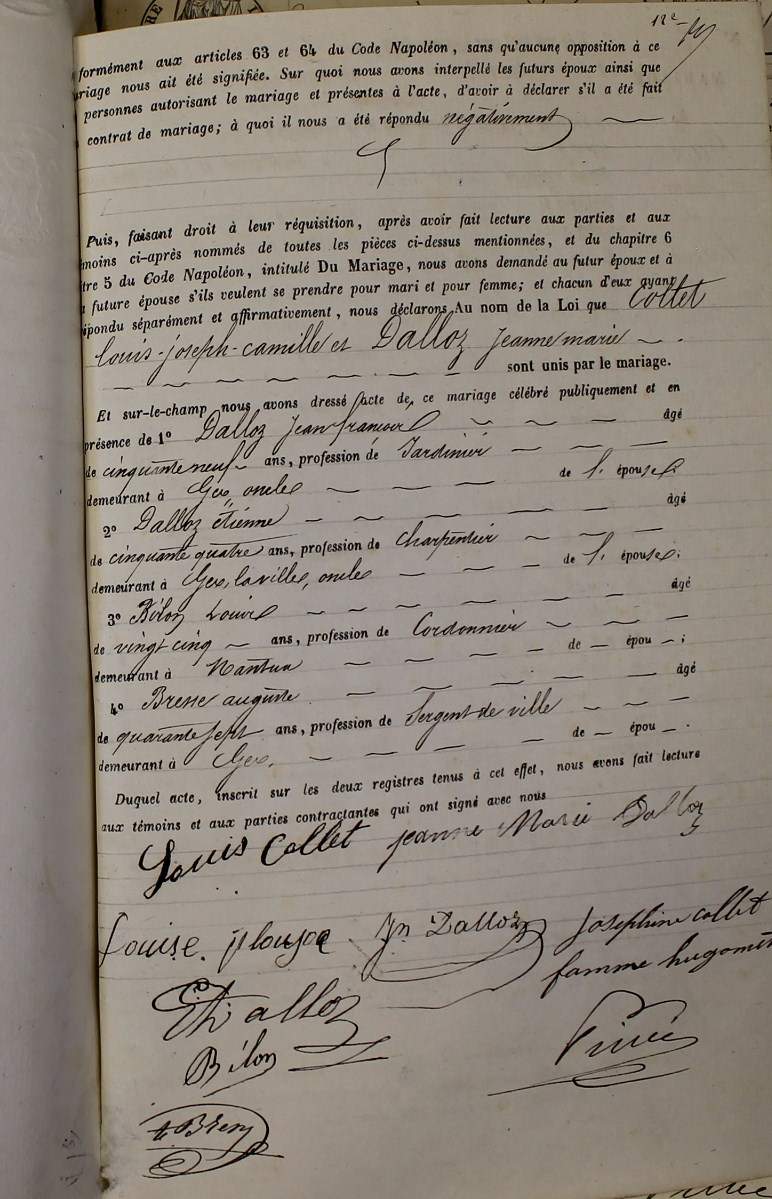 12e
formément aux articles 63 et 64 du Code Napoléon, sans qu'aucune opposition à ce
riage nous ait été signifiée. Sur quoi nous avons interpellé les futurs époux ainsi que
personnes autorisant le mariage et présentes à l'acte, d'avoir à déclarer s'il a été fait
contrat de mariage; à quoi il nous a été répondu négativement
Puis, faisant droit à leur réquisition, après avoir fait lecture aux parties et aux
moins ci-après nommés de toutes les pièces ci-dessus mentionnées, et du chapitre 6
tre 5 du Code Napoléon, intitulé Du Mariage, nous avons demandé au futur époux et à
future épouse s'ils veulent se prendre pour mari et pour femme; et chacun d'eux ayant
répondu séparément et affirmativement, nous déclarons Au nom de la Loi que Collet
Louis-joseph-camille et Dalloz Jeanne marie
sont unis par le mariage.
Et sur-le-champ nous avons dressé acte de ce mariage célébré publiquement et en
présence de 1º Dalloz Jean françois âgé
de cinquante neuf ans, profession de Jardinier
demeurant à Gex, oncle de l'épouse
2º Dalloz étienne âgé
de cinquante quatre ans, profession de Charpentier
demeurant à Gex, la ville, oncle de l'épouse;
3º Bélon Louis âgé
de vingt cinq ans, profession de Cordonnier
demeurant à Nantua de — épou —;
4º Bresse auguste âgé
de quarante sept ans, profession de Sergent de ville
demeurant à Gex, de — épou —.
Duquel acte, inscrit sur les deux registres tenus à cet effet, nous avons fait lecture
aux témoins et aux parties contractantes qui ont signé avec nous
Louis Collet jeanne Marie Dalloz
Louise Jn Dalloz Josephine collet
famme
Et Dalloz
Bélon